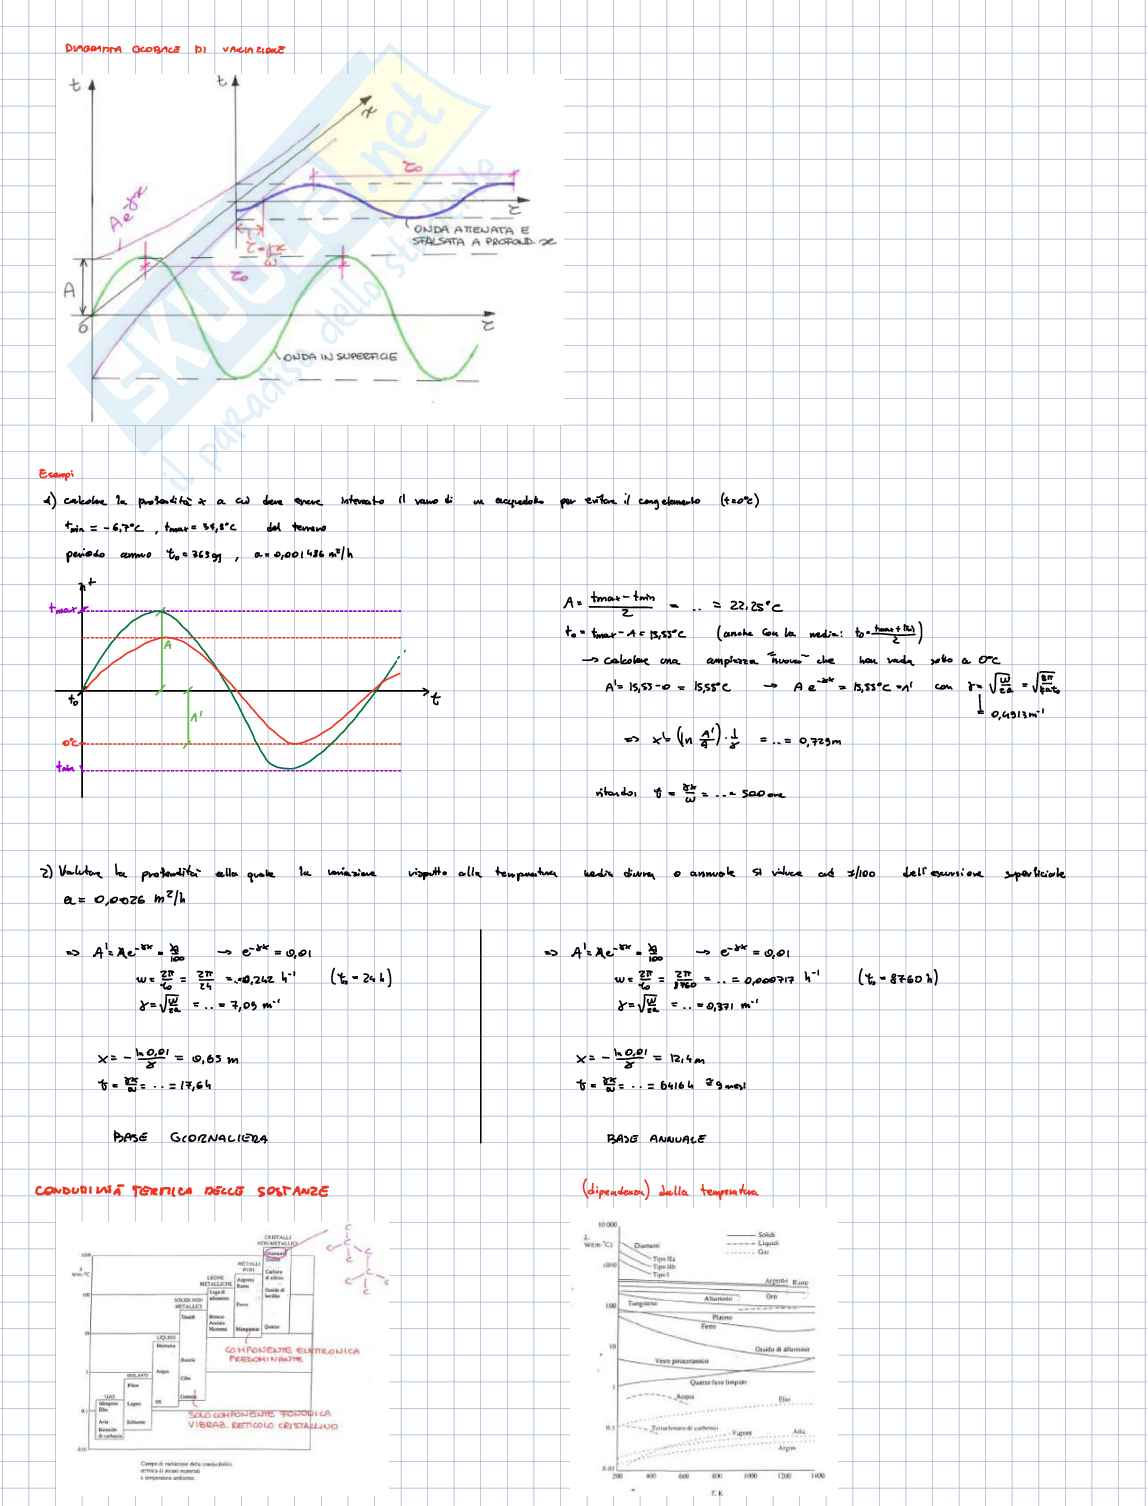 DIAGRAMMA GLOBALE DI VARIAZIONE
t
t
x
Ae^-γx
τ₀
τ
ONDA ATTENATA E
SFALSATA A PROFOND. x
τ = γx/ω
τ₀
A
0
τ
ONDA IN SUPERFICIE
SKUOLA.net
il paradiso dello studente
Esempi
1) calcolare la profondità x a cui deve essere interrato il vano di un acquedotto per evitare il congelamento (t=0°C)
tmin = -6,7°C , tmax = 37,8°C del terreno
periodo annuo τ₀ = 365 gg , a = 0,001486 m²/h
t
tmax
A
t₀
τ
A'
0°C
tmin
A = (tmax - tmin)/2 = .. = 22,25°C
t₀ = tmax - A = 15,55°C (anche con la media: t₀ = (tmax + tmin)/2)
→ calcolare una ampiezza "nuova" che non vada sotto a 0°C
A' = 15,55 - 0 = 15,55°C → A e^-γx = 15,55°C = A' con γ = √(ω/2a) = √(2π/2aτ₀)
= 0,4913 m⁻¹
⇒ x = (ln A'/A) · 1/γ = .. = 0,729 m
ritardo: τ = γx/ω = .. = 500 ore
2) Valutare la profondità alla quale la variazione rispetto alla temperatura media diurna o annuale si riduce ad 1/100 dell'escursione superficiale
a = 0,0026 m²/h
⇒ A' = Ae^-γx = A/100 → e^-γx = 0,01
ω = 2π/τ₀ = 2π/24 = .. = 0,262 h⁻¹ (τ₀ = 24 h)
γ = √(ω/2a) = .. = 7,09 m⁻¹
x = - ln 0,01/γ = 0,65 m
τ = γx/ω = .. = 17,6 h
BASE GIORNALIERA
⇒ A' = Ae^-γx = A/100 → e^-γx = 0,01
ω = 2π/τ₀ = 2π/8760 = .. = 0,000717 h⁻¹ (τ₀ = 8760 h)
γ = √(ω/2a) = .. = 0,371 m⁻¹
x = - ln 0,01/γ = 12,4 m
τ = γx/ω = .. = 6416 h ≅ 9 mesi
BASE ANNUALE
CONDUTTIVITÀ TERMICA DELLE SOSTANZE
CRISTALLI
NON METALLICI
Diamante
Grafite
Carburo
di silicio
Ossido di
berillio
Quarzo
METALLI
PURI
Argento
Rame
Ferro
Manganese
LEGHE
METALLICHE
Lega di
alluminio
Bronzo
Acciaio
Nicromo
SOLIDI NON
METALLICI
Ossidi
Roccia
Cibo
Gomma
LIQUIDI
Mercurio
Acqua
Oli
ISOLANTI
Fibre
Legno
Schiume
GAS
Idrogeno
Elio
Aria
Biossido
di carbonio
1000
λ
W/(m·°C)
100
10
1
0.1
0.01
C
C
C
C
C
C
C
COMPONENTE ELETTRONICA
PREDOMINANTE
SOLO COMPONENTE FONONICA
VIBRAZ. RETICOLO CRISTALLINO
Campo di variazione della conducibilità
termica di alcuni materiali
a temperatura ambiente.
(dipendenza) dalla temperatura
10 000
λ
W/(m·°C)
1000
100
10
1
0.1
0.01
Solidi
Liquidi
Gas
Diamanti
Tipo IIa
Tipo IIb
Tipo I
Argento
Rame
Oro
Alluminio
Tungsteno
Platino
Ferro
Ossido di alluminio
Vetro piroceramico
Quarzo fuso limpido
Acqua
Elio
Tetracloruro di carbonio
Vapore
Aria
Argon
200 400 600 800 1000 1200 1400
T, K